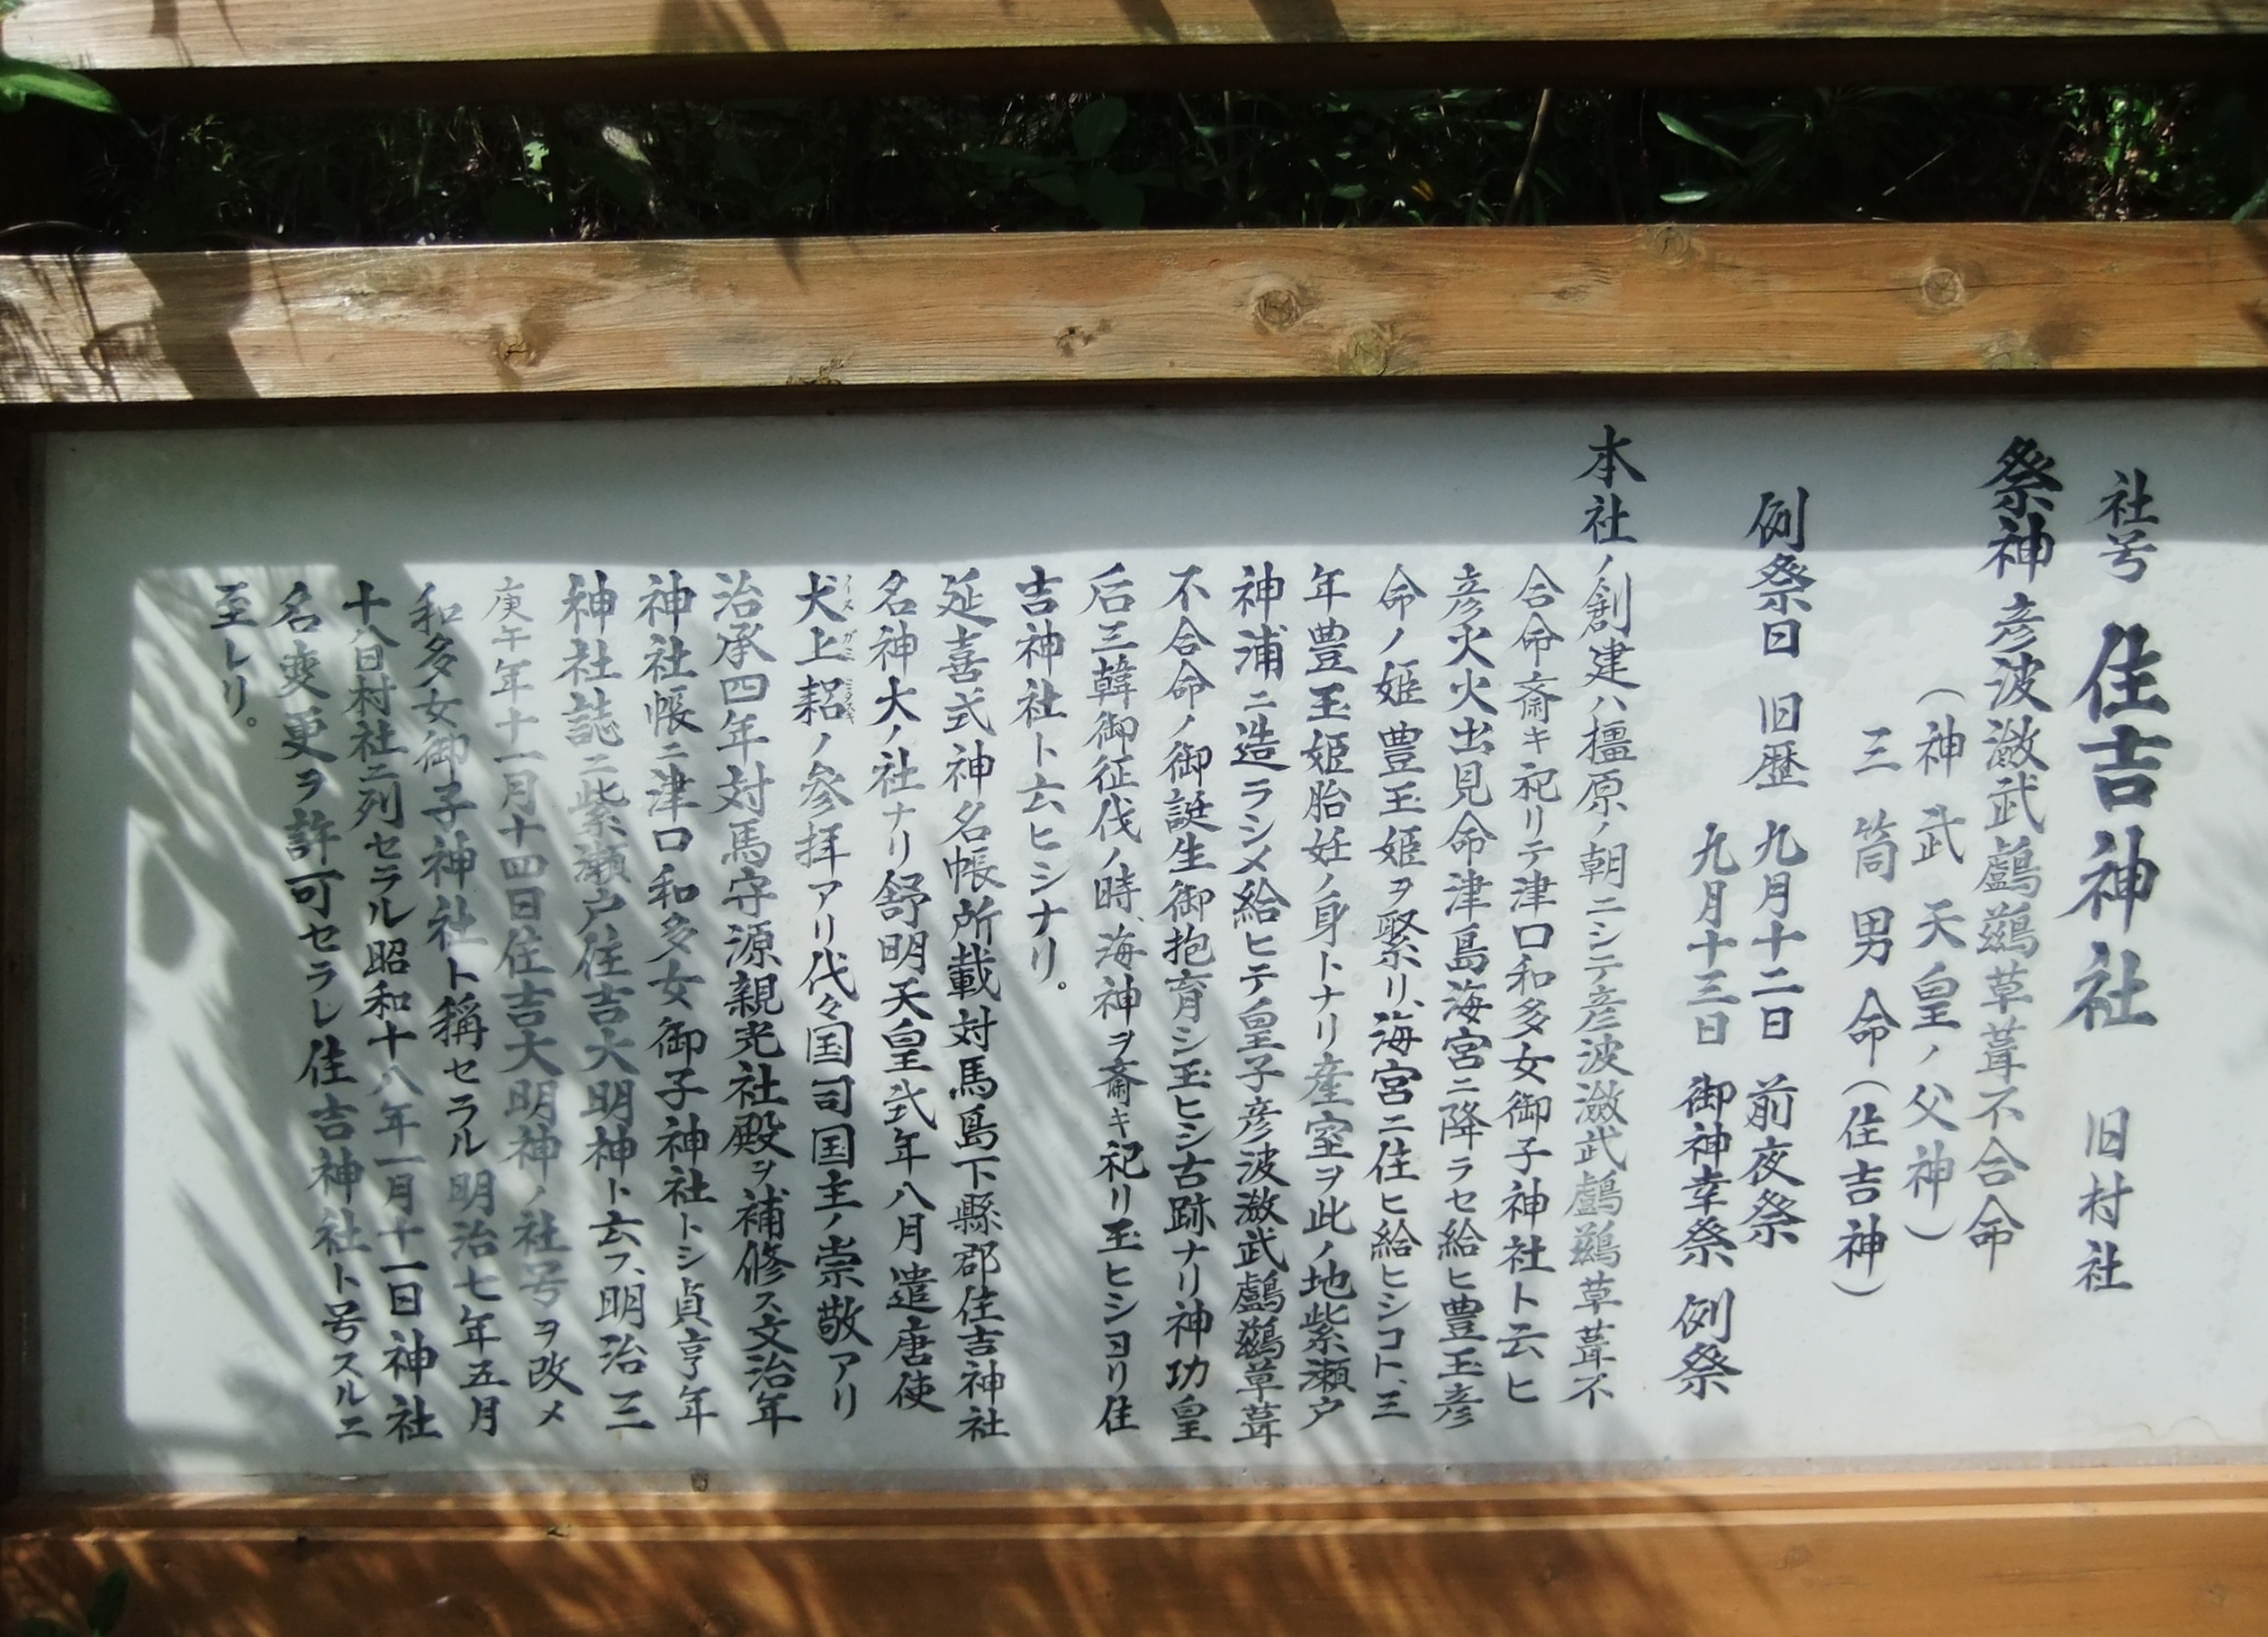 社号 住吉神社 旧村社
祭神 彦波瀲武鸕鷀草葺不合命
（神武天皇ノ父神）
三筒男命（住吉神）
例祭日 旧歴 九月十二日 前夜祭
九月十三日 御神幸祭 例祭
本社ノ創建ハ橿原ノ朝ニシテ彦波瀲武鸕鷀草葺不
合命斎キ祀リテ津口和多女御子神社ト云ヒ
彦火火出見命津島海宮ニ降ラセ給ヒ豊玉彦
命ノ姫豊玉姫ヲ娶リ、海宮ニ住ヒ給ヒシコト、三
年豊玉姫胎妊ノ身トナリ産室ヲ此ノ地紫瀬戸
神浦ニ造ラシメ給ヒテ皇子彦波瀲武鸕鷀草葺
不合命ノ御誕生御抱育シ玉ヒシ古跡ナリ神功皇
后三韓御征伐ノ時、海神ヲ斎キ祀リ玉ヒシヨリ住
吉神社ト云ヒシナリ。
延喜式神名帳所載対馬島下縣郡住吉神社
名神大ノ社ナリ舒明天皇弐年八月遣唐使
犬上耜ノ参拝アリ代々国司国主ノ崇敬アリ
イヌ ガミ ミタスキ
治承四年対馬守源親光社殿ヲ補修ス文治年
神社帳ニ津口和多女御子神社トシ貞亨年
神社誌ニ紫瀬戸住吉大明神ト云フ、明治三
庚午年十一月十四日住吉大明神ノ社号ヲ改メ
和多女御子神社ト稱セラル明治七年五月
十八日村社ニ列セラル昭和十八年一月十一日神社
名変更ヲ許可セラレ住吉神社ト号スルニ
至レリ。